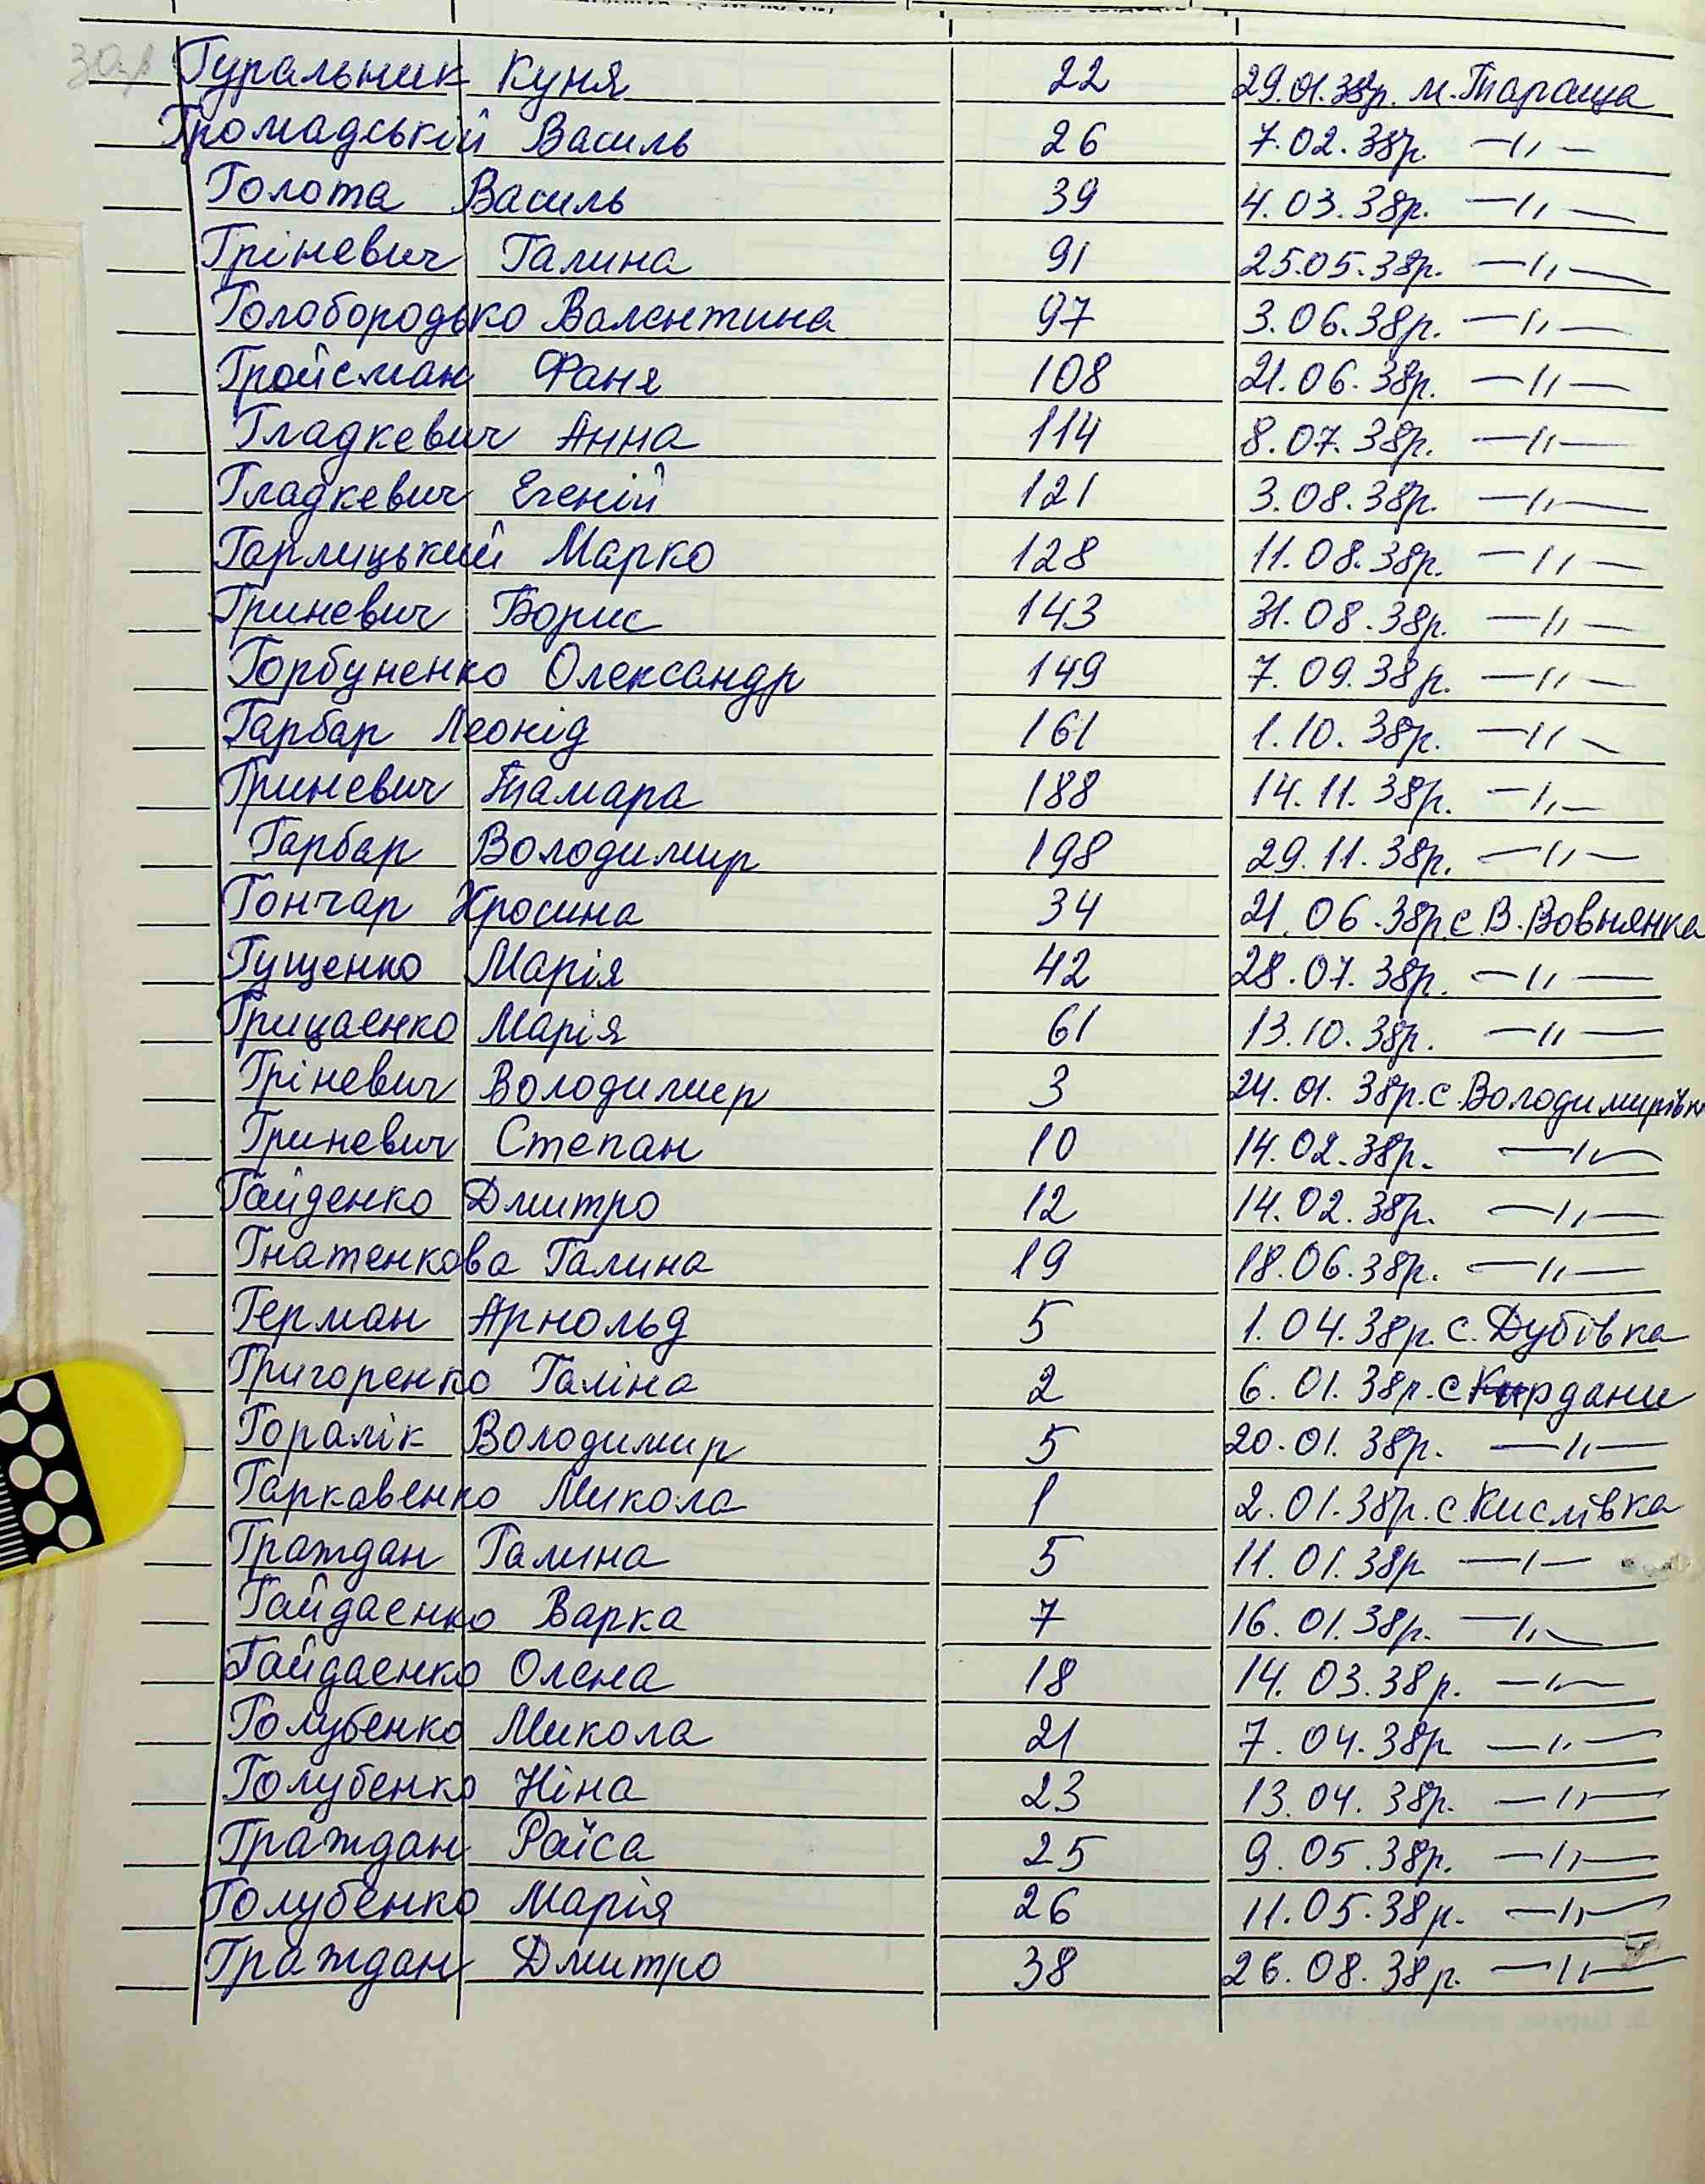 Гуральник Куня 22 29.01.38р. м. Тараща
Громадській Василь 26 7.02.38р. —//—
Голота Василь 39 4.03.38р. —//—
Гріневич Галина 91 25.05.38р. —//—
Голобородько Валентина 97 3.06.38р. —//—
Гройсман Фаня 108 21.06.38р. —//—
Гладкевич Анна 114 8.07.38р. —//—
Гладкевич Егеній 121 3.08.38р. —//—
Гарлицький Марко 128 11.08.38р. —//—
Гриневич Борис 143 31.08.38р. —//—
Горбуненко Олександр 149 7.09.38р. —//—
Гарбар Леонід 161 1.10.38р. —//—
Гриневич Тамара 188 14.11.38р. —//—
Гарбар Володимир 198 29.11.38р. —//—
Гончар Хросина 34 21.06.38р с В. Вовнянка
Гущенко Марія 42 28.07.38р. —//—
Грицаєнко Марія 61 13.10.38р. —//—
Гріневич Володимер 3 24.01.38р. с. Володимирівка
Гриневич Степан 10 14.02.38р. —//—
Гайденко Дмитро 12 14.02.38р. —//—
Гнатенкова Галина 19 18.06.38р. —//—
Герман Арнольд 5 1.04.38р. с. Дубівка
Григоренко Галіна 2 6.01.38р. с Кирдани
Горалік Володимир 5 20.01.38р. —//—
Гаркавенко Микола 1 2.01.38р. с. Кислівка
Граждан Галина 5 11.01.38р —//—
Гайдаєнко Варка 7 16.01.38р. —//—
Гайдаєнко Олена 18 14.03.38р. —//—
Голубенко Микола 21 7.04.38р —//—
Голубенко Ніна 23 13.04.38р. —//—
Граждан Раїса 25 9.05.38р. —//—
Голубенко Марія 26 11.05.38р. —//—
Граждан Дмитро 38 26.08.38р. —//—